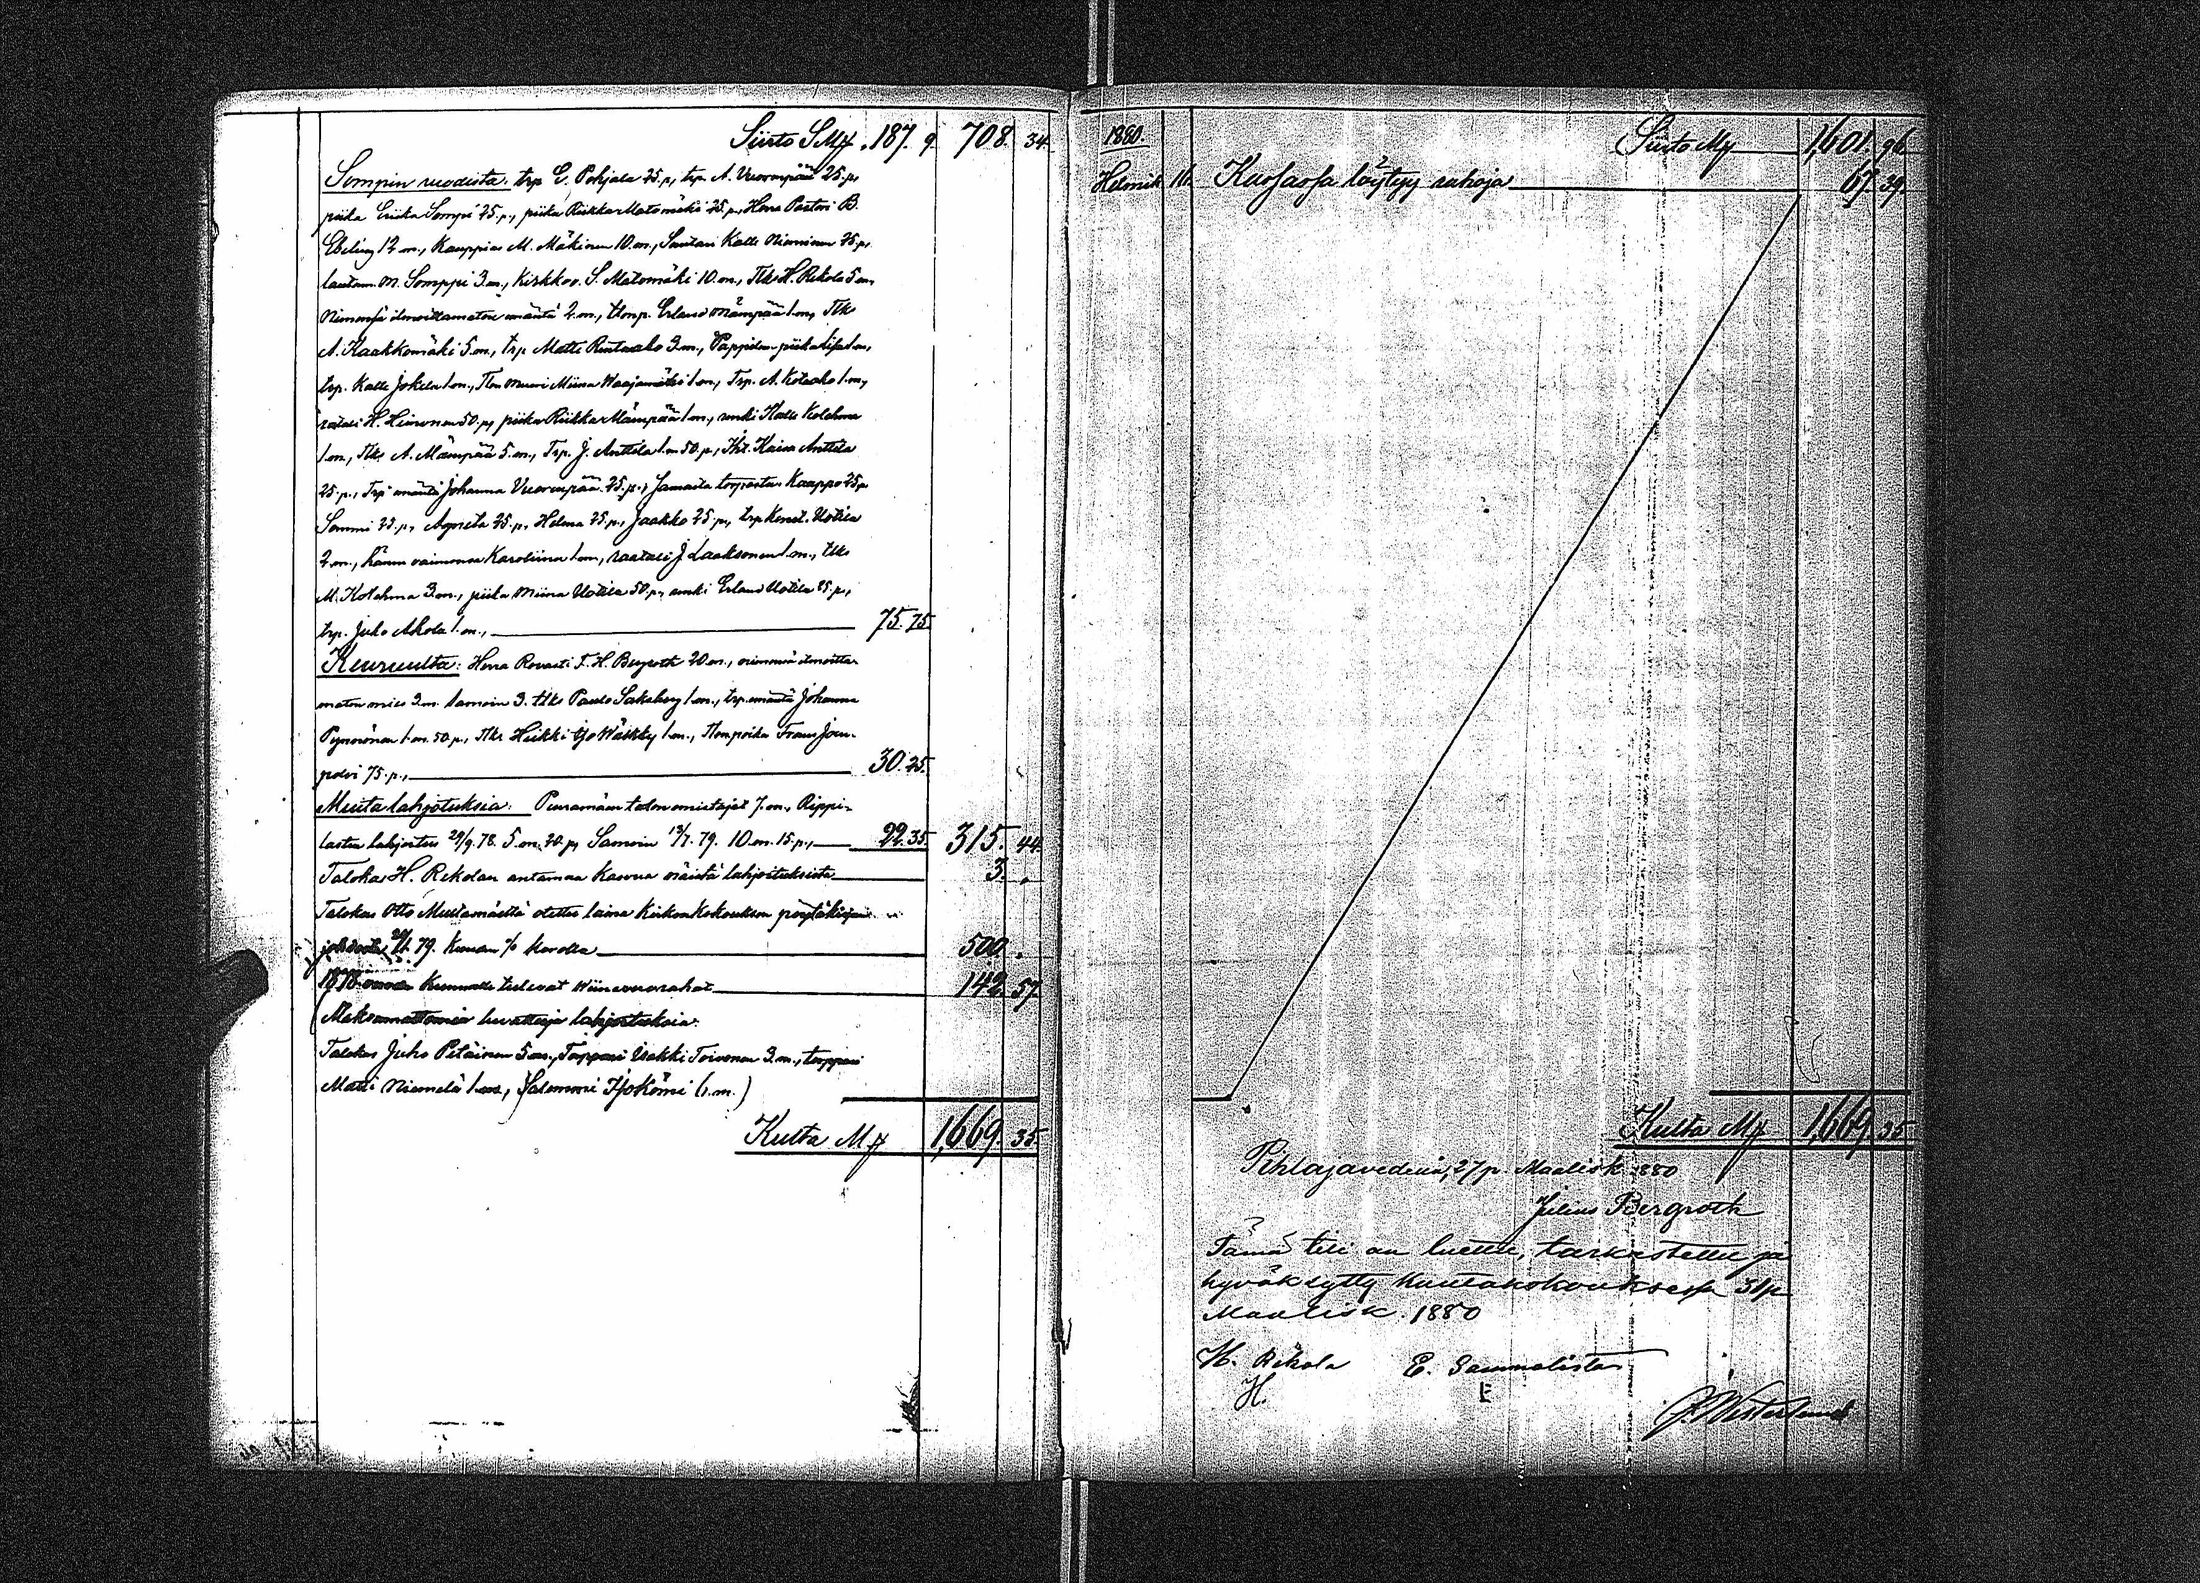 Siirto SMy. 187. 9. 708. 34.
Sompin ruodista: trp E. Pohjala 25.p, trp. A. Vuorenpää 25.p,
piika Eriika Sompi 25.p., piika Riikka Matomäki 25.p., Herra Pastori B.
Ebeling 12 m., Kauppias M. Mäkinen 10.m., Suutari Kalle Nieminen 25.p.
lautam. M. Somppi 3.m., Kirkkov. S. Matomäki 10.m., Tlks H. Rekola 5 m,
Nimensä ilmoittamatoin emäntä 2.m., tlonp. Erland Mämpää 1.m, Tlks
A. Kaakkomäki 5.m., trp Matti Rintaaho 3.m., Pappilan piika
trp. Kalle Jokela 1.m., Tlon muori Miina Waajamäki 1.m., Trp. A. Kotaaho 1.m,
räätäli H. Heinonen 50.p, piika Riikka Mämpää 1 m., renki Kalle Kolehma
1.m., Tlks A. Mämpää 5.m., Trp. J. Anttila 1.m 50.p., Ihs. Kaisa Anttila
25.p., Trp emäntä Johanna Vuorenpää 25.p., Samasta torpasta Kaappo 25p
Sommi 25.p, Agneta 25.p, Helma 25.p, Jaakko 25.p, trp Kenet. Uotila
2.m., hänen vaimonsa Karoliina 1.m, räätäli J. Laaksonen 1.m., tlks
M. Kolehma 3.m., piika Miina Uotila 50.p, renki Erland Uotila 25.p,
trp. Juho Ahola 1.m., 75. 75.
Keuruulta: Herra Rovasti F. H. Bergroth 20 m., nimensä ilmoitta-
matoin mies 3.m. samoin 3. tlks Paulo Saksberg 1.m., trp. emäntä Johanna
Pynnönen 1.m. 50.p, Tlks Heikki Iso Wälkky 1.m., Tlonpoika Frans Joen-
polvi 75.p., 30. 25.
Muita lahjotuksia: Peuramäen talon omistajat 7.m., Rippi-
lasten lahjoitus 29/9. 78. 5 m. 20.p, Samoin 13/7. 79. 10 m. 15.p, 22.35. 315. 44.
Talokas H. Rekolan antamaa Kasvua näistä lahjoituksista 3. .
Talokas Otto Multamäeltä otettu laina Kirkonkokouksen pöytäkirjan
johdosta 79. Kuuden % korolla 500. .
1878 vuoden Kunnalle tulevat Wiinaverorahat 142. 57.
(Maksamattomia luvattuja lahjoituksia:
Talokas Juho Petäinen 5 m., Torppari Iisakki Toivonen 3.m., torppari
Matti Niemelä 1.m., Salomoni Isokömi (1.m.)
Kulta My 1,669. 35.
1880. Siirto My 1,601. 96.
Helmik. 16. Kassassa löytyy rahoja 67. 39.
Kulta My 1,669. 35
Pihlajavedellä, 27 p. Maalisk 1880
Julius Bergroth
Tämä tili on luettu, tarkastettu ja
hyväksytty kuntakokouksessa 31 p
Maalisk. 1880
H. Rekola E. Sammalisto
H. E
J. Westerlund